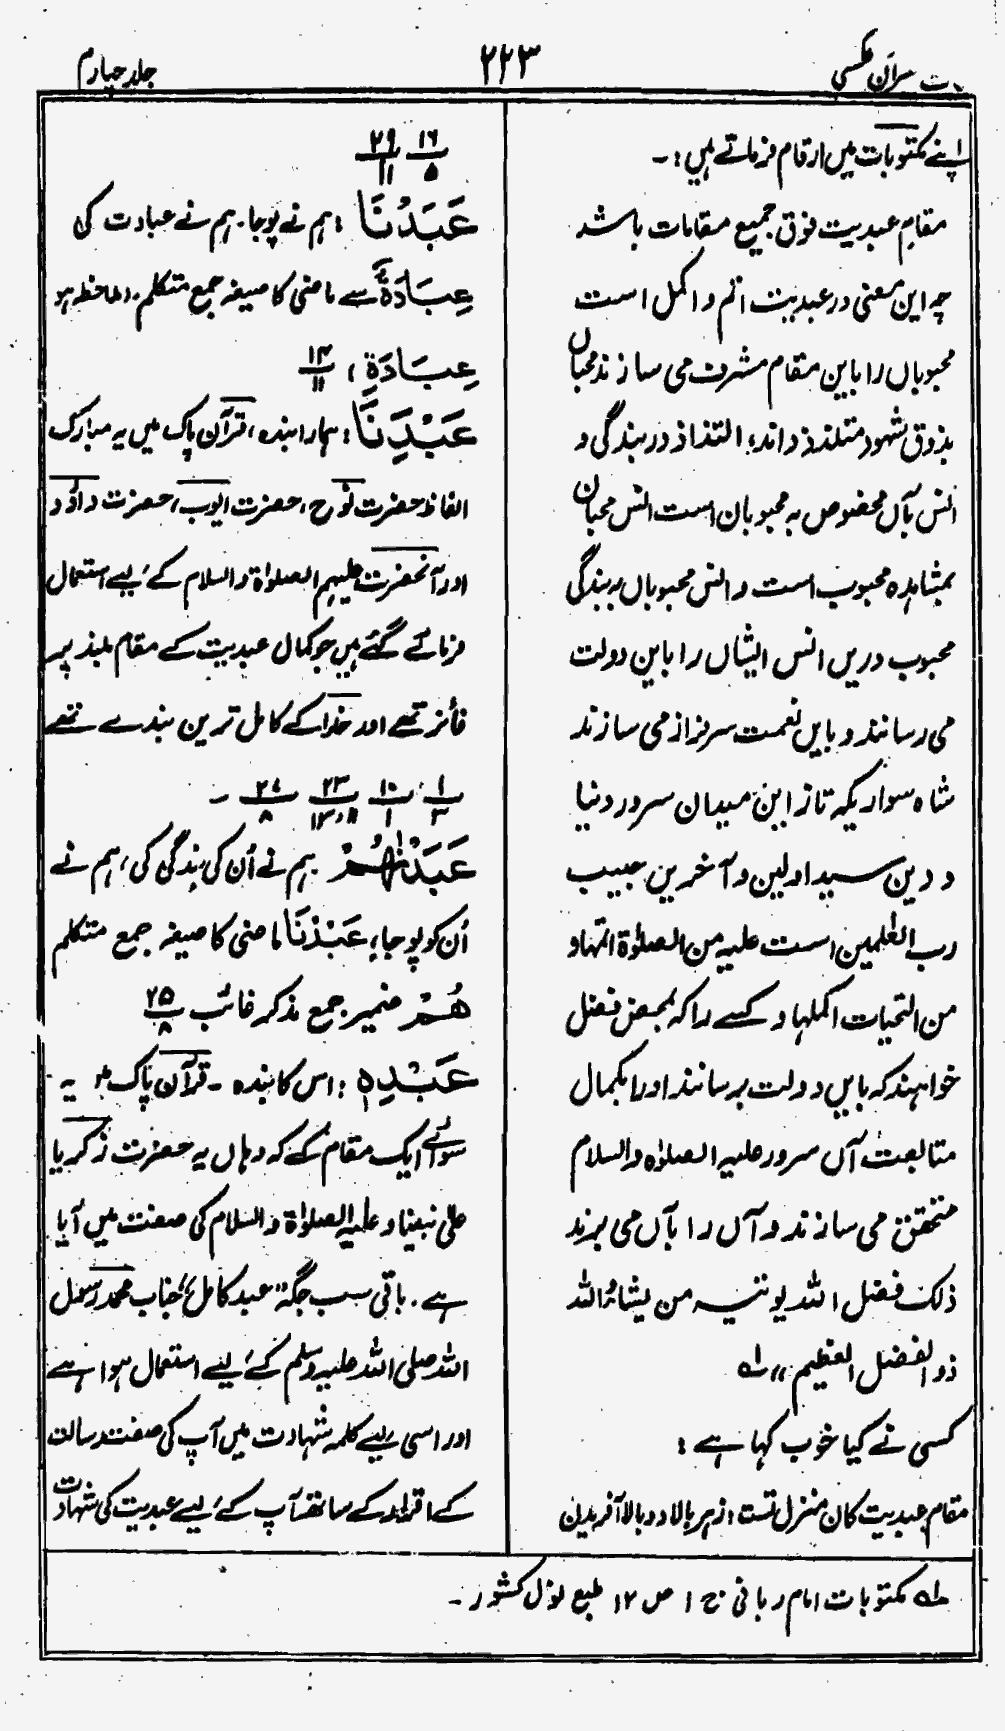 جلد چہارم
۲۲۳
قرآن عکسی
اپنے مکتوبات میں ارقام فرماتے ہیں:۔
مقامِ عبدیت فوق جمیع مقامات باشد
چہ این معنی در عبدیت اتم و اکمل است
محبوباں را باین مقام مشرف می سازند محباں
بذوق شہود متلذذ داند؛ التذاذ در بندگی و
انس بآں مخصوص بہ محبوبان است انس محبان
بمشاہدہ محبوب است و انس محبوباں بہ بندگی
محبوب دریں انس ایشاں را باین دولت
می رسانند و بایں نعمت سرفراز می سازند
شاہ سوار یکہ تاز این میدان سرور دنیا
و دین سید اولین و آخرین حبیب
رب العٰلمین است علیہ من الصلوٰۃ اتمہا و
من التحیات اکملہا و کسے را کہ بمحض فضل
خواہند کہ بایں دولت برسانند او را بکمال
متابعت آں سرور علیہ الصلوٰہ والسلام
متحقق می سازند و آں را بآں می برند
ذلک فضل اللہ یوتیہ من یشاءُ اللہ
ذو الفضل العظیم،، لہ
کسی نے کیا خوب کہا ہے :
مقام عبدیت کان منزل تست ؛ زہر بالا و دبالا آفریدن
۱۶/۵ ۲۹/۱۱
عَبَدْنَا : ہم نے پوجا۔ ہم نے عبادت کی
عِبَادَةٌ سے ماضی کا صیغہ جمع متکلم۔ (ملاحظہ ہو
عِبَادَةِ ، ۱۴/۱۱
عَبْدِنَا : ہمارا بندہ ، قرآن پاک میں یہ مبارک
الفاظ حضرت نوح ، حضرت ایوب ، حضرت داؤد
اور آنحضرت علیہم الصلوٰۃ والسلام کے لیے استعمال
فرمائے گئے ہیں جو کمال عبدیت کے مقام بلند پر
فائز تھے اور خدا کے کامل ترین بندے تھے
۱/۳ ۱۰/۱ ۲۳/۱۳،۱۱ ۲۷/۸ ۔
عَبَدْنٰهُمْ ہم نے اُن کی بندگی کی ، ہم نے
اُن کو پوجا؛ عَبَدْنَا ماضی کا صیغہ جمع متکلم
هُمْ ضمیر جمع مذکر غائب ۲۵/۸
عَبْدِهٖ : اس کا بندہ ۔ قرآن پاک میں یہ
سوائے ایک مقام کے کہ وہاں یہ حضرت زکریا
علیٰ نبینا و علیہ الصلوٰۃ والسلام کی صفت میں آیا
ہے ۔ باقی سب جگہ "عبد کامل" جناب محمد رسول
اللہ صلی اللہ علیہ وسلم کے لیے استعمال ہوا ہے
اور اسی لیے کلمہ شہادت میں آپ کی صفت رسالت
کے اقرار کے ساتھ آپ کے لیے عبدیت کی شہادت
لہ مکتوبات امام ربانی ج ۱ ص ۱۲ طبع نول کشور ۔